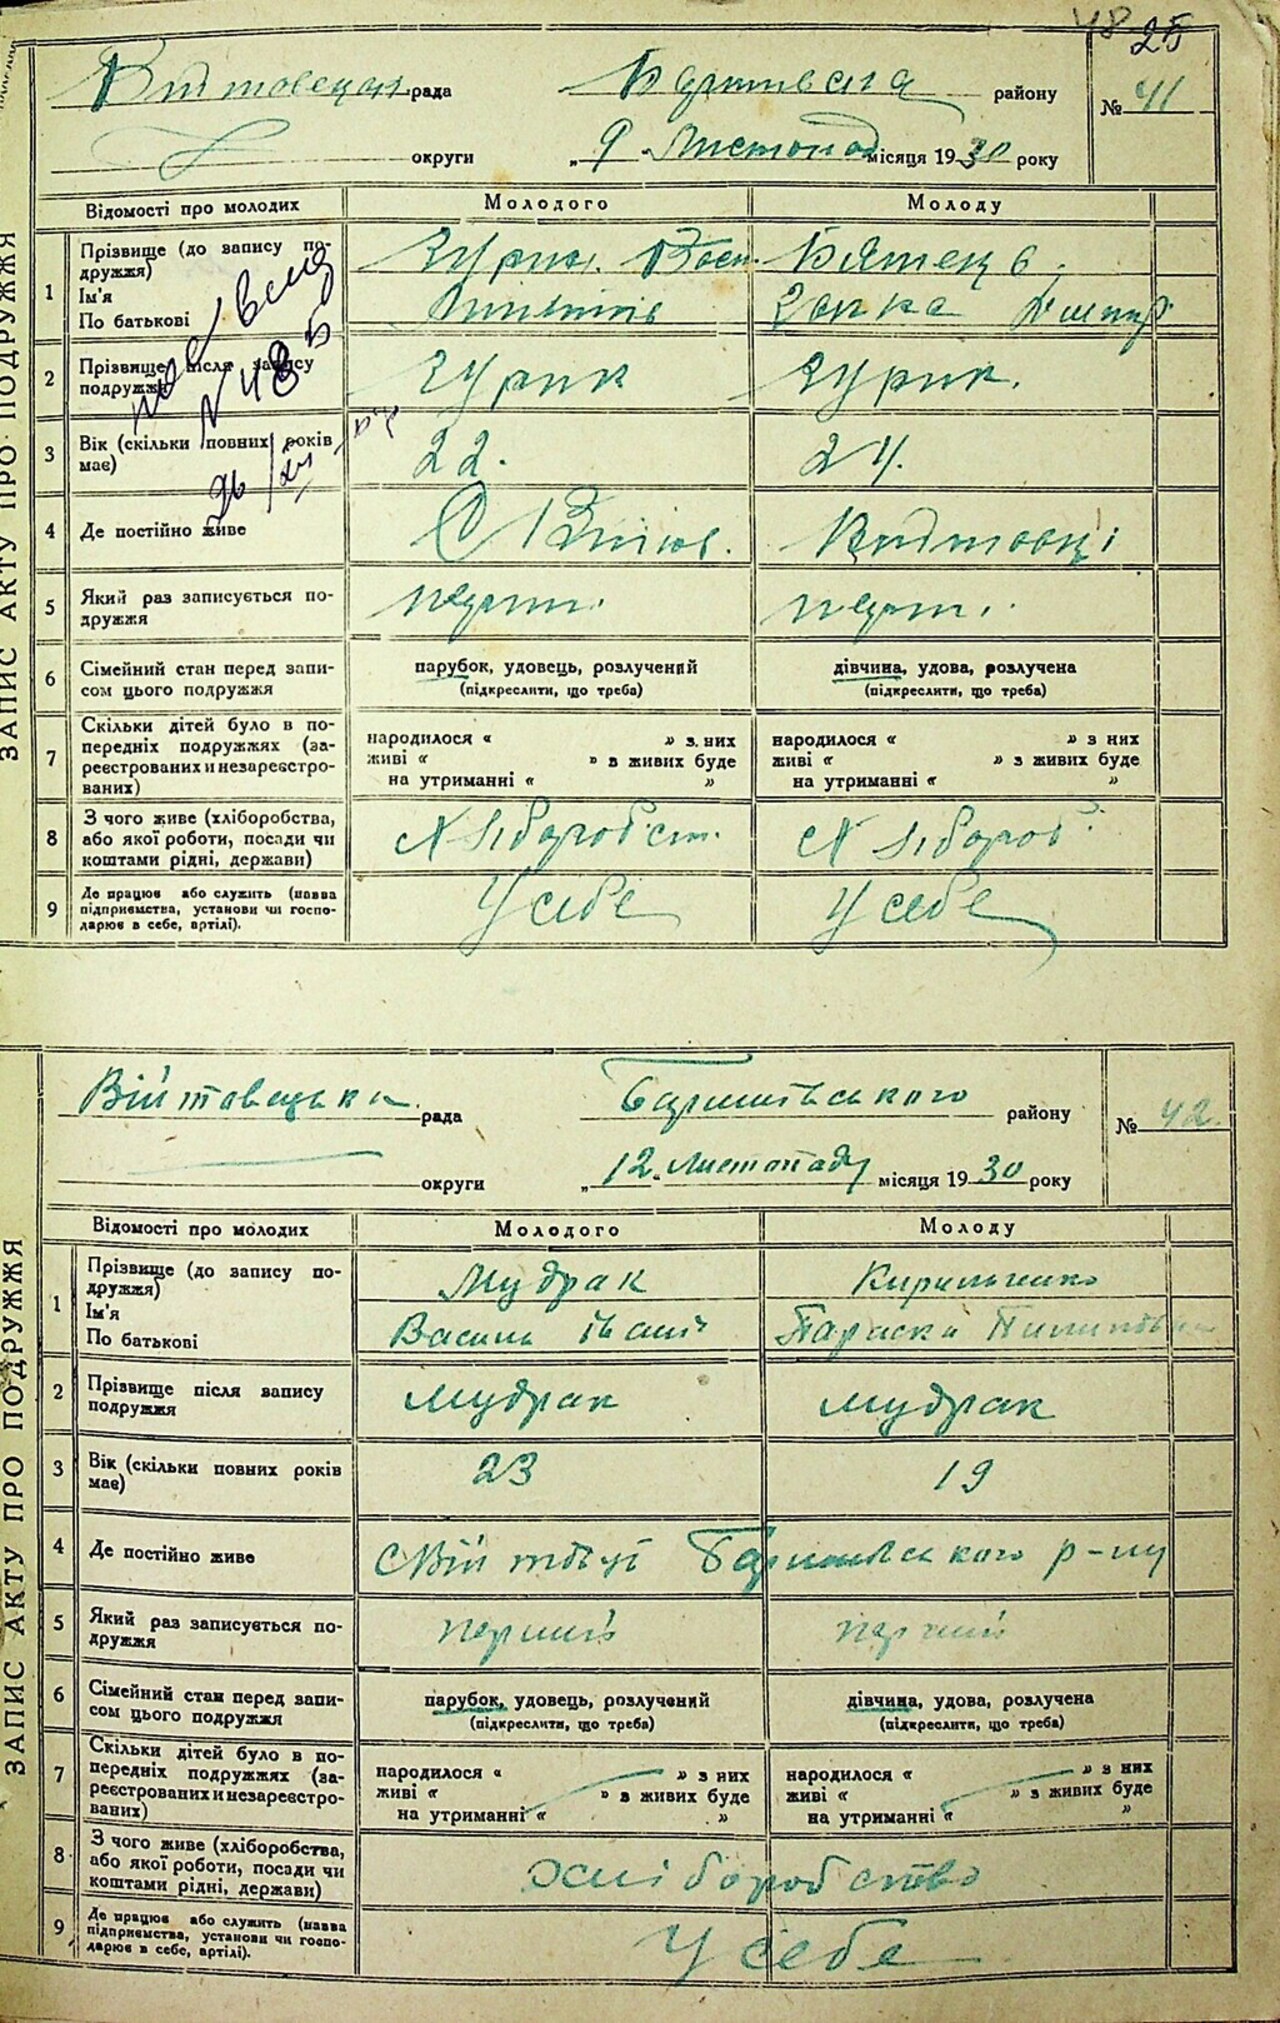 48 25
рада Баришівсько району № 41
округи „ 9 „ Листопад місяця 1930 року
ЗАПИС АКТУ ПРО ПОДРУЖЖЯ
Відомості про молодих Молодого Молоду
1 Прізвище (до запису подружжя) Зурик.
Ім'я
По батькові
№ 48
2 Прізвище після запису подружжя Зурик Зурик.
3 Вік (скільки повних років має) 22. 24.
4 Де постійно живе
5 Який раз записується подружжя
6 Сімейний стан перед записом цього подружжя парубок, удовець, розлучений дівчина, удова, розлучена
(підкреслити, що треба) (підкреслити, що треба)
7 Скільки дітей було в попередніх подружжях (зареєстрованих и незареєстрованих) народилося « » з них народилося « » з них
живі « » в живих буде живі « » з живих буде
на утриманні « » на утриманні « »
8 З чого живе (хліборобства, або якої роботи, посади чи коштами рідні, держави) Хліборобст. Хлібороб
9 Де працює або служить (назва підприємства, установи чи господарює в себе, артілі). У себе У себе
Війтовецька рада Баришівського району № 42.
округи „ 12 „ Листопаду місяця 1930 року
ЗАПИС АКТУ ПРО ПОДРУЖЖЯ
Відомості про молодих Молодого Молоду
1 Прізвище (до запису подружжя) Мудрак Кириленко
Ім'я
По батькові Василь Параска
2 Прізвище після запису подружжя Мудрак Мудрак
3 Вік (скільки повних років має) 23 19
4 Де постійно живе Баришівського р-ну
5 Який раз записується подружжя перший перший
6 Сімейний стан перед записом цього подружжя парубок, удовець, розлучений дівчина, удова, розлучена
(підкреслити, що треба) (підкреслити, що треба)
7 Скільки дітей було в попередніх подружжях (зареєстрованих и незареєстрованих) народилося « » з них народилося « » з них
живі « » в живих буде живі « » з живих буде
на утриманні « » на утриманні « »
8 З чого живе (хліборобства, або якої роботи, посади чи коштами рідні, держави) Хліборобство
9 Де працює або служить (назва підприємства, установи чи господарює в себе, артілі). У себе